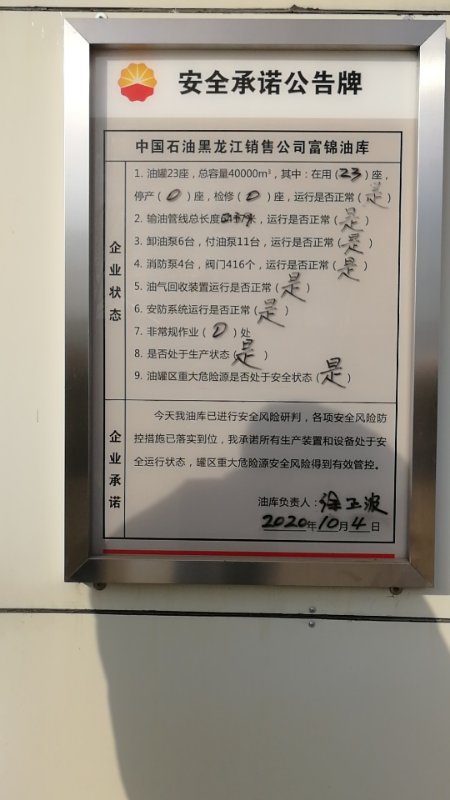 安全承诺公告牌
中国石油黑龙江销售公司富锦油库
企业状态
1. 油罐23座，总容量40000m³，其中：在用（23）座，
停产（0）座，检修（0）座，运行是否正常（是）
2. 输油管线总长度米，运行是否正常（是）
3. 卸油泵6台，付油泵11台，运行是否正常（是）
4. 消防泵4台，阀门416个，运行是否正常（是）
5. 油气回收装置运行是否正常（是）
6. 安防系统运行是否正常（是）
7. 非常规作业（0）处
8. 是否处于生产状态（是）
9. 油罐区重大危险源是否处于安全状态（是）
企业承诺
今天我油库已进行安全风险研判，各项安全风险防
控措施已落实到位，我承诺所有生产装置和设备处于安
全运行状态，罐区重大危险源安全风险得到有效管控。
油库负责人：徐正波
2020年10月4日